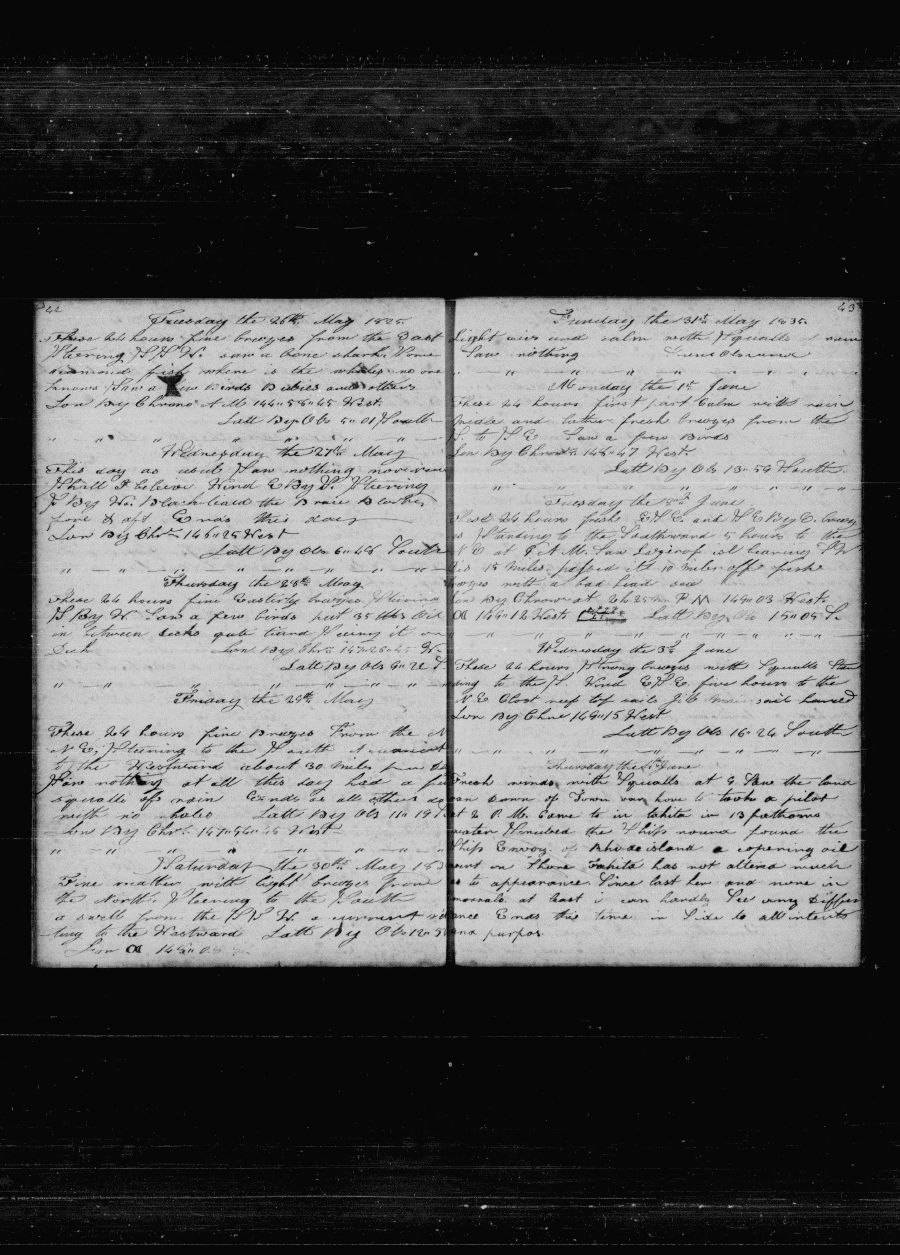 42
Tuesday the 26th May 1835
These 24 hours fine breezes from the East
Steering S S W. saw a bone shark. Some
diamond fish where is the whales no one
knows Saw a few Birds Bobies and others
Lon By Chrono A M 144=58=45 West
Latt By Obs 5=01 South
Wednesday the 27th May
This day as usual Saw nothing nor ever
Shall I believe Wind E By S. Steering
S By W. Black lead the
fore & aft Ends this day
Lon By Chr 146=25 West
Latt By Obs 6=48 South
Thursday the 28th May
These 24 hours fine Easterly breezes Steering
S By W Saw a few birds put 35 bbls Oil
in between decks
Deck Lon By Chr W.
Latt By Obs S
Friday the 29th May
These 24 hours fine Breezes From the N
N E; Steering to the South A current
to the Westward about 30 miles
Saw nothing at all this day had a few
squalls of rain Ends as all others do
with no whales Latt By Obs 11=19 S
Lon By Chr. 147=54=45 West
Saturday the 30th May 183
Fine weather with light breezes from
the North. Steering to the South
a swell from the S S W. a current
ting to the Westward Latt By Obs 12=5
Lon 148=08
43
Sunday the 31st May 1835
Light airs and calm with Squalls of rain
Saw nothing
Monday the 1st June
These 24 hours first part Calm with rain
Middle and latter fresh breezes from the
S. to S E Saw a few Birds
Lon By Chro 148=47 West
Latt By Ob 13=54 South
Tuesday the 2d June
These 24 hours fresh E S E and S E By E. breezes
Standing to the Southward 5 hours to the
N E at A M. Saw isl bearing
15 miles. passed it 10 miles off fresh
with a bad head sea
Lon By Chrono at P M 149=03 West
144=12 West Latt By Ob 15=05 S.
Wednesday the 3d June
These 24 hours Strong breezes with Squalls Stan
ding to the S. Wind E S E five hours to the
N E Close reef top sails Jib sail hauled
Lon By Chro 149=15 West
Latt By Obs 16=24 South
Thursday the 4th June
Fresh winds with Squalls at 9 Saw the land
ran down of Town took a pilot
at 2 P. M. Came to in tahita in 13 fathoms
water Hauled the Ship round found the
Ship Envoy of Rhode island a copering oil
went on Shore Tahita has not altend much
as to appearance Since last here and none in
morrals. at least i can hardly See any Differ
ance Ends this time in Side to all intents
and purpos